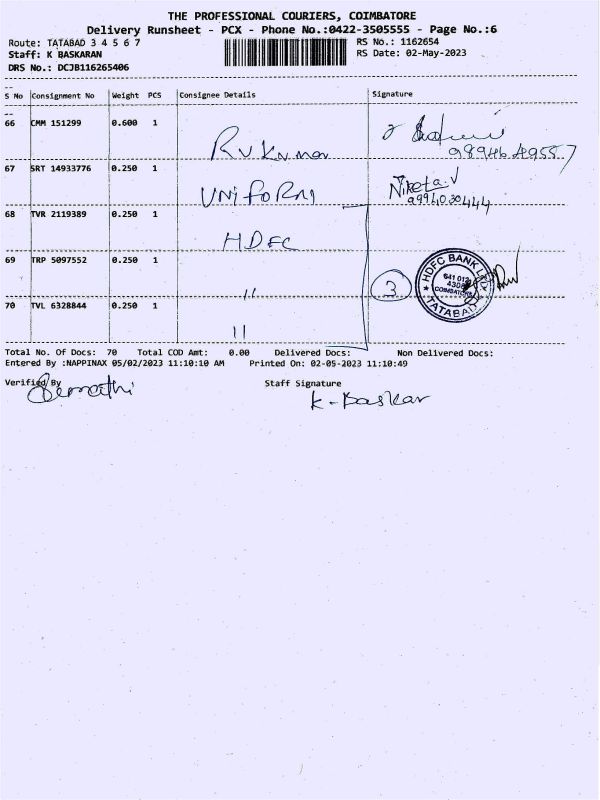 THE PROFESSIONAL COURIERS, COIMBATORE
Delivery Runsheet - PCX - Phone No.:0422-3505555 - Page No.:6
Route: TATABAD 3 4 5 6 7 RS No.: 1162654
Staff: K BASKARAN RS Date: 02-May-2023
DRS No.: DCJB116265406
S No Consignment No Weight PCS Consignee Details Signature
66 CMM 151299 0.600 1
67 SRT 14933776 0.250 1 UNIFORM Niketa.V
9994030444
68 TVR 2119389 0.250 1 HDFC
69 TRP 5097552 0.250 1 " 3 HDFC BANK LTD
641 012
COIMBATORE
TATABAD
70 TVL 6328844 0.250 1 "
Total No. Of Docs: 70 Total COD Amt: 0.00 Delivered Docs: Non Delivered Docs:
Entered By :NAPPINAX 05/02/2023 11:10:10 AM Printed On: 02-05-2023 11:10:49
Verified By Staff Signature
K-Baskar